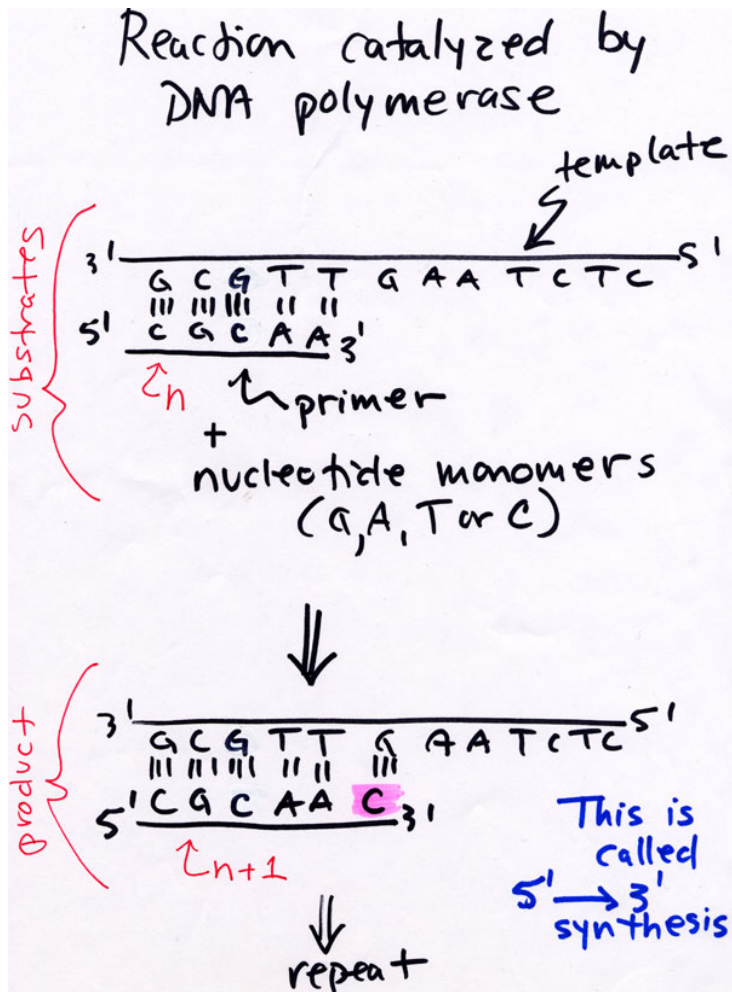 Reaction catalyzed by
DNA polymerase
template
substrates
3' 5'
G C G T T G A A T C T C
5' C G C A A 3'
n
primer
+
nucleotide monomers
(G, A, T or C)
product
3' 5'
G C G T T G A A T C T C
5' C G C A A C 3'
n+1
This is
called
5' → 3'
synthesis
repeat